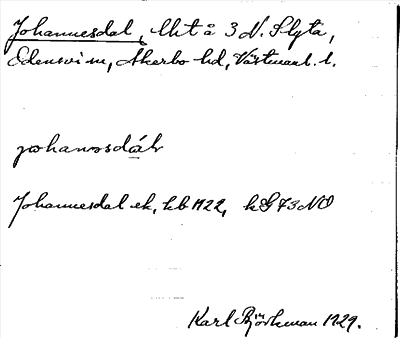 Johannesdal, lht å 3 N. Slyta,
Edensvi sn, Åkerbo hd, Västmanl. l.
johannsdáh
Johannesdal ek, kb 1122, kG 43 NO
Karl Björkman 1929.